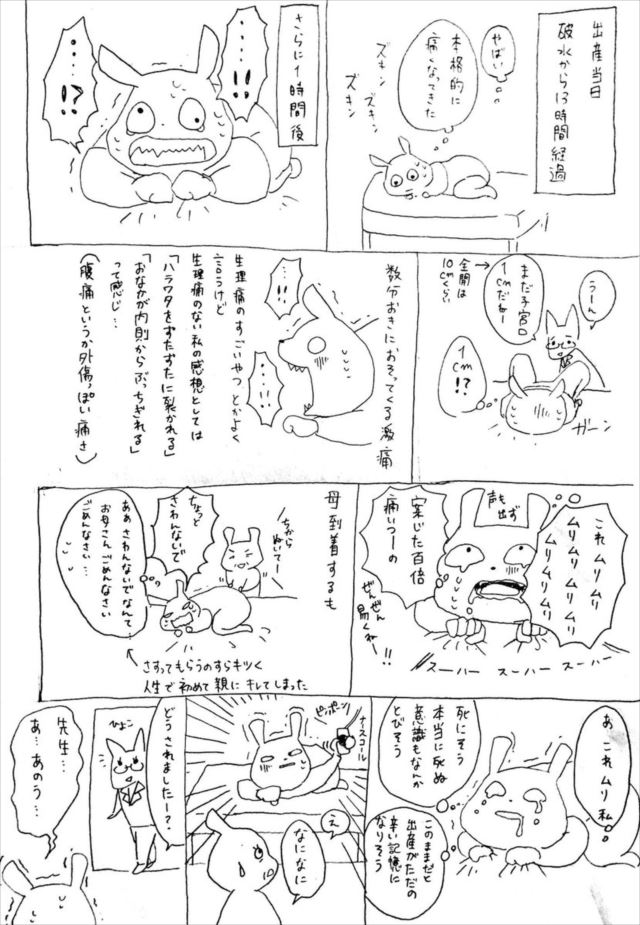 出産当日
破水から13時間経過
やばい
本格的に
痛くなってきた
ズキン
ズキン
ズキン
さらに1時間後
…!!
…!?
うーん
まだ子宮口
1cmだねー
→全開は
10cmくらい
1cm!?
ガーン
数分おきにおそってくる激痛
…!!
…!!
生理痛のすごいやつとかよく
言うけど
生理痛のない私の感想としては
「ハラワタをずたずたに裂かれる」
「おなかが内側からぶっちぎれる」
って感じ…
(腹痛というか外傷っぽい痛さ)
これムリムリ
ムリムリムリ
ムリムリムリ
声も
出ず
案じた百倍
痛いつーの
ぜんぜん
易くねー!!
スーハー スーハー スーハー
母到着するも
ちから
ぬいてー
ちょっと
さわんないで
ああさわんないでなんて…
お母さんごめんなさい
ごめんなさい…
さすってもらうのすらキツく
人生で初めて親にキレてしまった
あ これムリ 私
死にそう
本当に死ぬ
意識もなんか
とびそう
このままだと
出産がただの
辛い記憶に
なりそう
ナースコール
ピンポーン
え
なになに
どうされましたー?
ひょこ
先生…
あ…あのう…